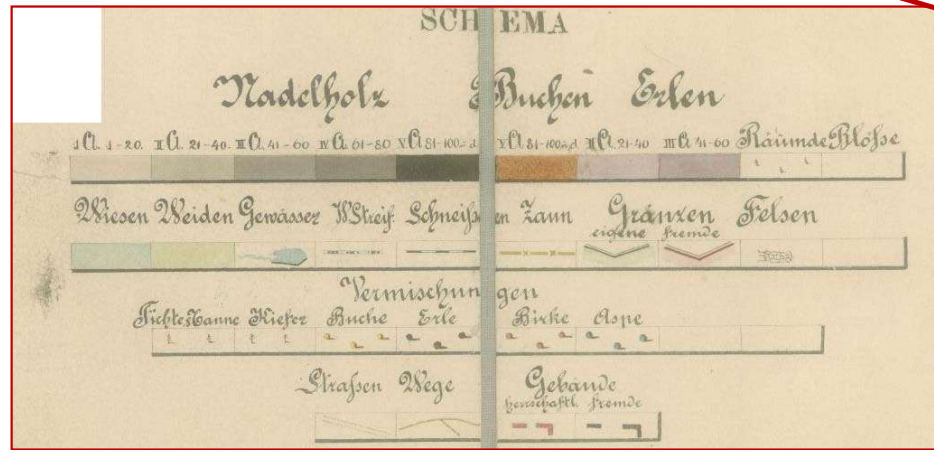 SCHEMA
Nadelholz Buchen Erlen
I Cl. 1-20. II Cl. 21-40. III Cl. 41-60 IV Cl. 61-80 V Cl 81-100 u. d. V Cl 81-100 u. d II Cl. 21-40 III Cl. 41-60 Räumde Blöße
Wiesen Weiden Gewässer W.Streif. Schneißen Zaun Gränzen Felsen
eigene fremde
Vermischungen
Fichte Tanne Kiefer Buche Erle Birke Aspe
Straßen Wege Gebäude
herrschaftl. fremde